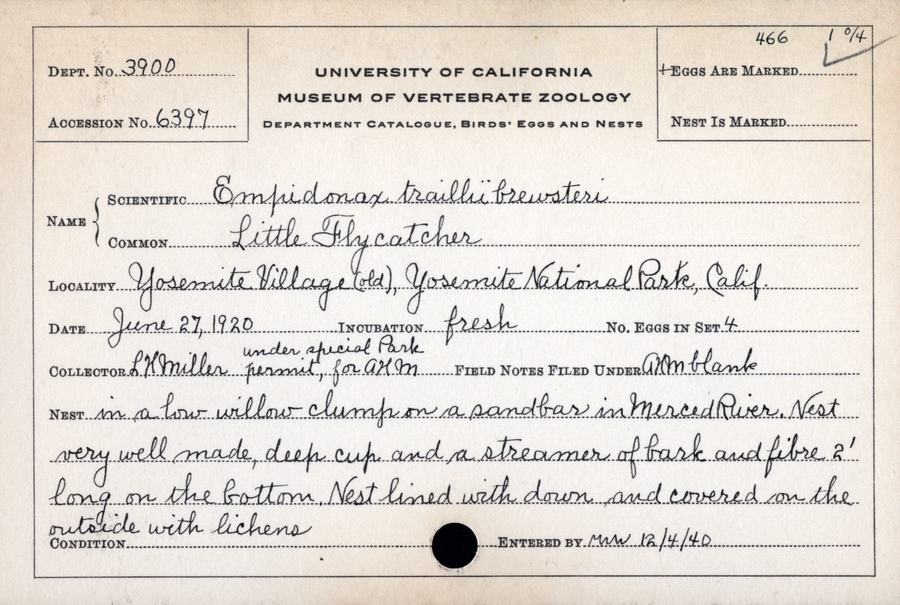 466 1 0/4
Dept. No. 3900
UNIVERSITY OF CALIFORNIA
+Eggs Are Marked
MUSEUM OF VERTEBRATE ZOOLOGY
Accession No. 6397
Department Catalogue, Birds' Eggs and Nests
Nest Is Marked
Name { Scientific Empidonax traillii brewsteri
Common Little Flycatcher
Locality Yosemite Village (old), Yosemite National Park, Calif.
Date June 27, 1920 Incubation fresh No. Eggs in Set 4
under special Park
Collector LHMiller permit, for AHM Field Notes Filed Under AHM blank
Nest in a low willow clump on a sandbar in Merced River. Nest
very well made, deep cup and a streamer of bark and fibre 2'
long on the bottom. Nest lined with down and covered on the
outside with lichens
Condition Entered by 12/4/40